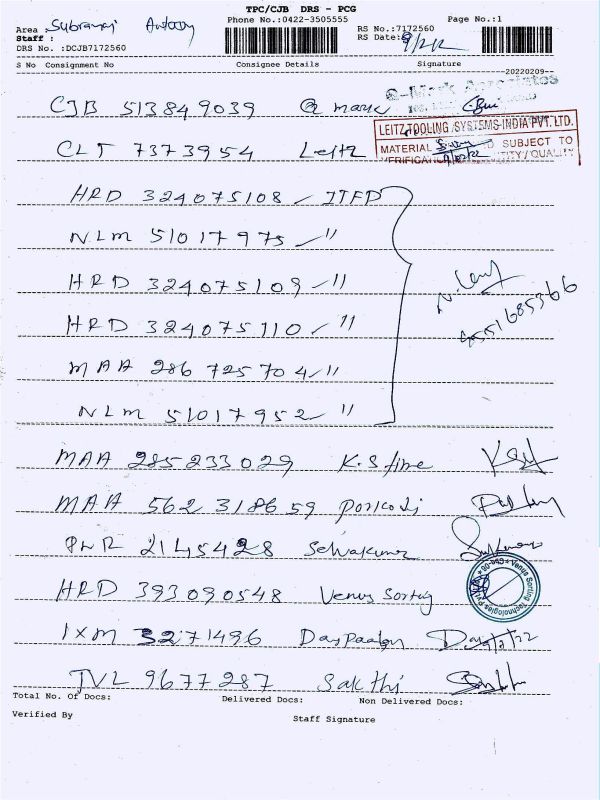 TPC/CJB DRS - PCG
Phone No.:0422-3505555
RS No.:7172560
Page No.:1
Area : Subramani Antony
Staff :
RS Date: 9/2/22
DRS No. :DCJB7172560
S No Consignment No Consignee Details Signature
20220209
CJB 513849039 Q mark
LEITZ TOOLING SYSTEMS INDIA PVT. LTD.
CLT 7373954 Leitz
MATERIAL SUBJECT TO
HRD 324075108 / ITFD
NLM 51017975 / "
HRD 324075109 / "
N. 8551685366
HRD 324075110 / "
MAA 286725704 / "
NLM 51017952 "
MAA 285233029 K.S time
MAA 562318659 Porkodi
PNR 2145428 Selvakumar
HRD 393090548 Venus Sorting
Venus Sorting Technologies Pvt
IXM 3271496
TVL 9677287 Sakthi
Total No. Of Docs: Delivered Docs: Non Delivered Docs:
Verified By Staff Signature